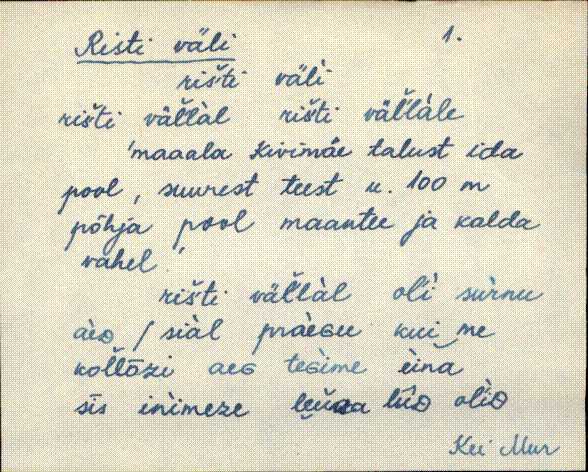 Risti väli 1.
rišti väli
rišti väľľàl rišti väľľàle
'maaala Kivimäe talust ida
pool, suurest teest u. 100 m
põhja pool maantee ja kalda
vahel'
rišti väľľàl oľi sùrnu
/ siàl praèGu kui me
aeG teGime èina
sīs inìmeze lūD oľìD
Kei Mur